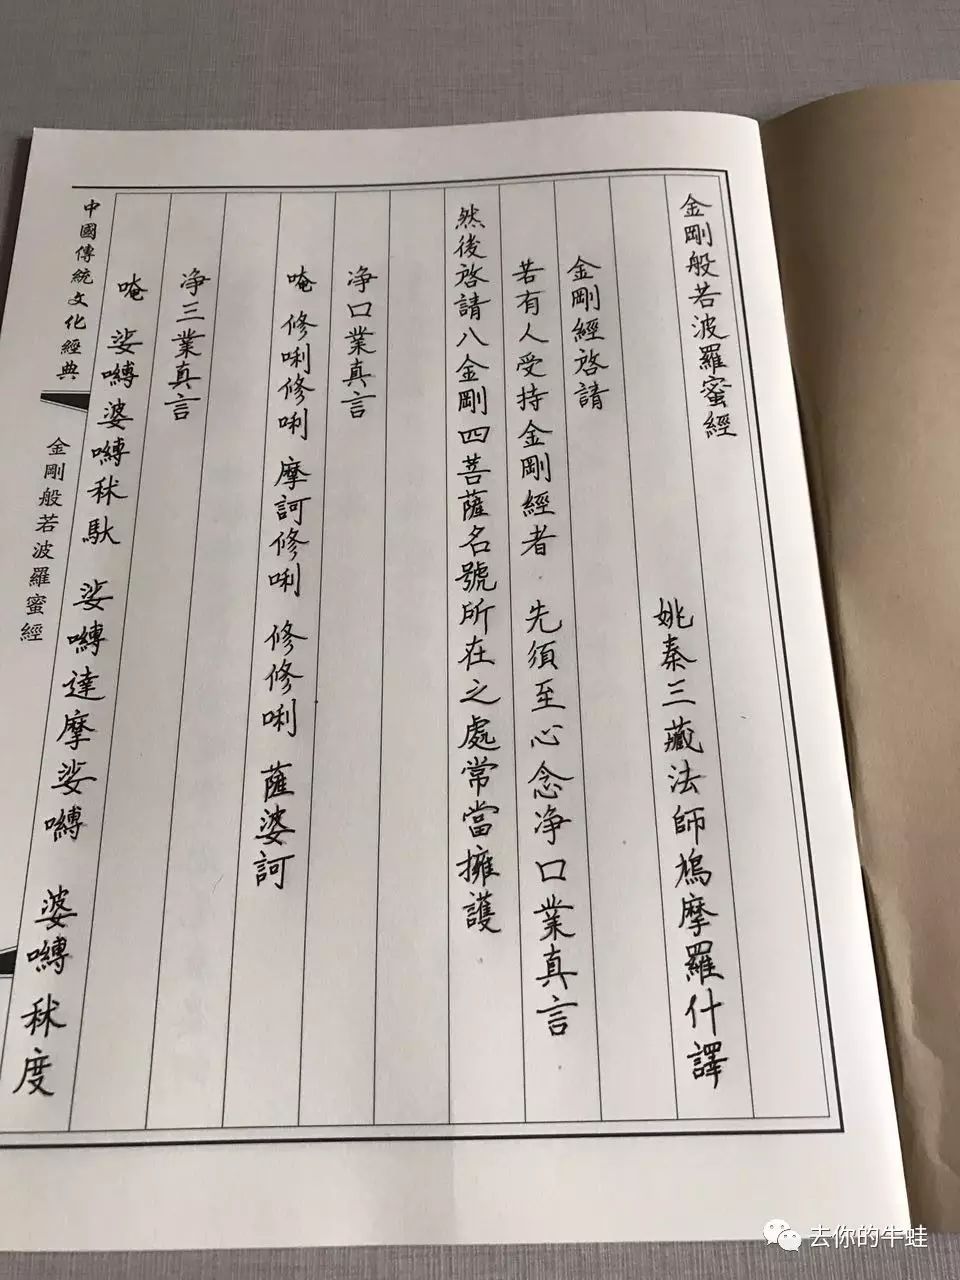 金剛般若波羅蜜經
姚秦三藏法師鳩摩羅什譯
金剛經啓請
若有人受持金剛經者 先須至心念净口業真言
然後啓請八金剛四菩薩名號所在之處常當擁護
净口業真言
唵 修唎修唎 摩訶修唎 修修唎 薩婆訶
净三業真言
唵 娑嚩婆嚩秫馱 娑嚩達摩娑嚩 婆嚩秫度
中國傳統文化經典
金剛般若波羅蜜經
去你的牛蛙